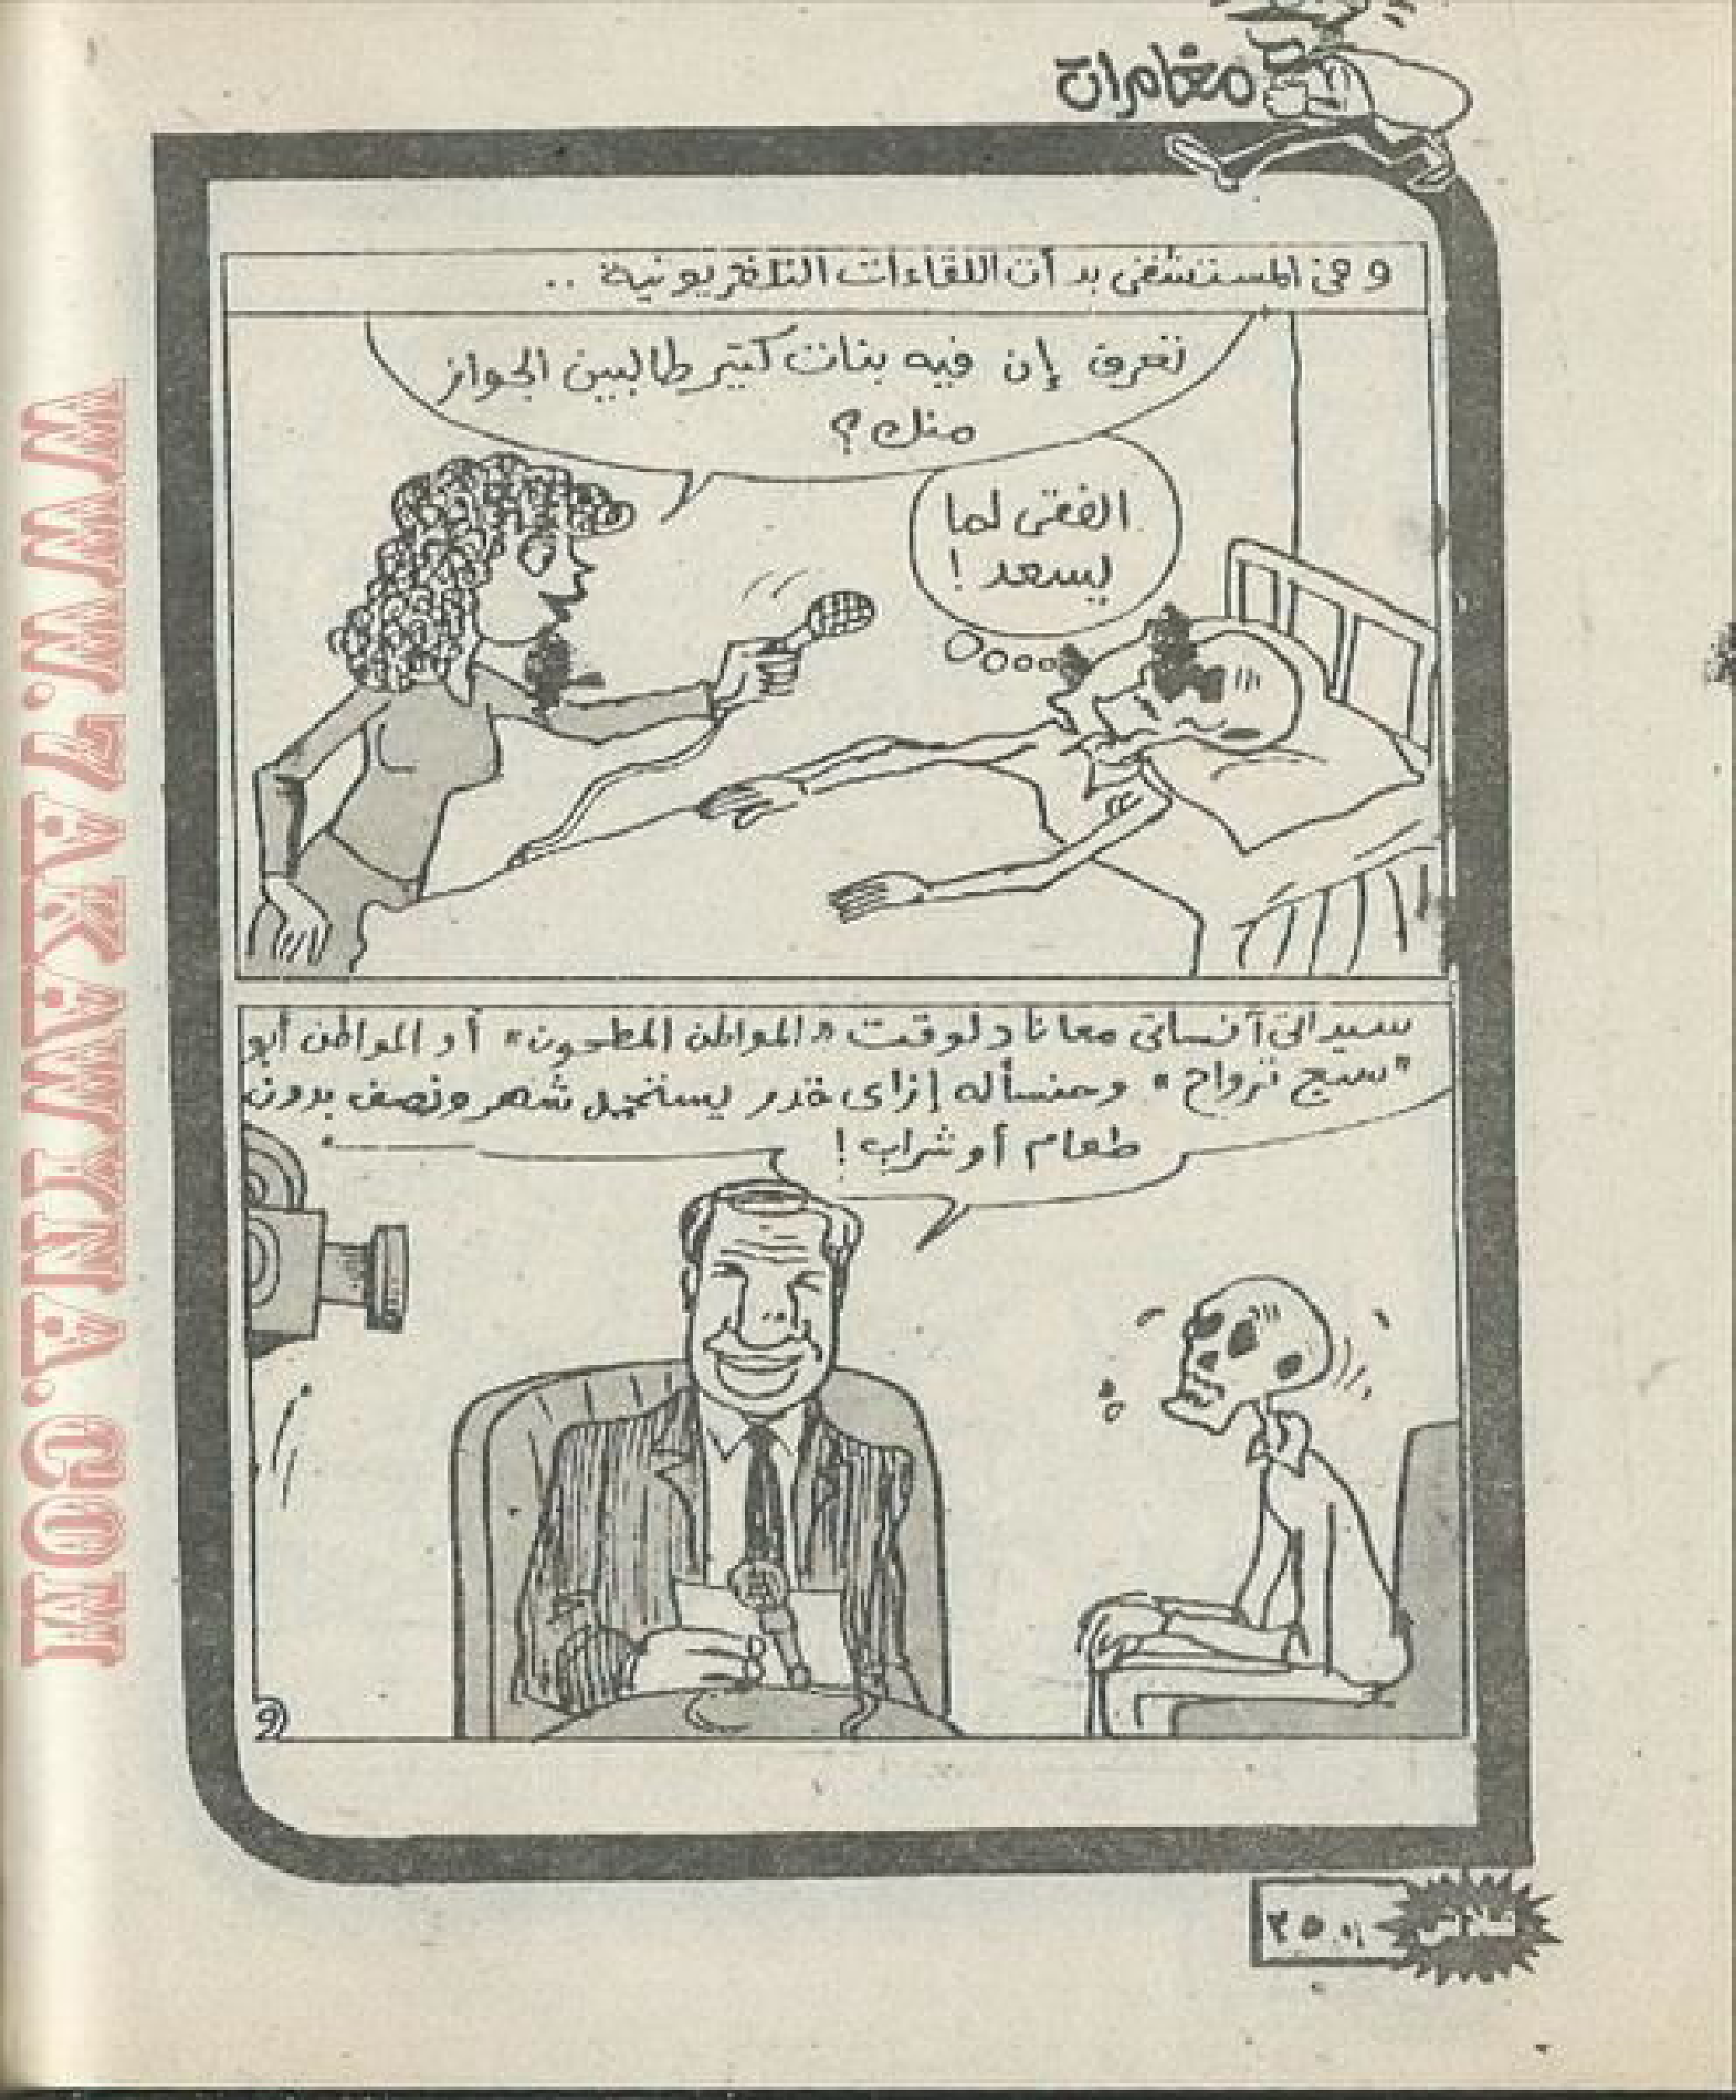 مغامرات
وفى المستشفى بدأت اللقاءات التلفزيونية ..
تعرف إن فيه بنات كتير طالبين الجواز
منك؟
الفقى لما
يسعد!
سيداتى آنساتى معانا دلوقت «المواطن المطحون» أو المواطن أبو
"سبع ترواح" وحنسأله إزاى قدر يستحمل شهر ونصف بدون
طعام أو شراب!
WWW.7AKAWITNA.COM